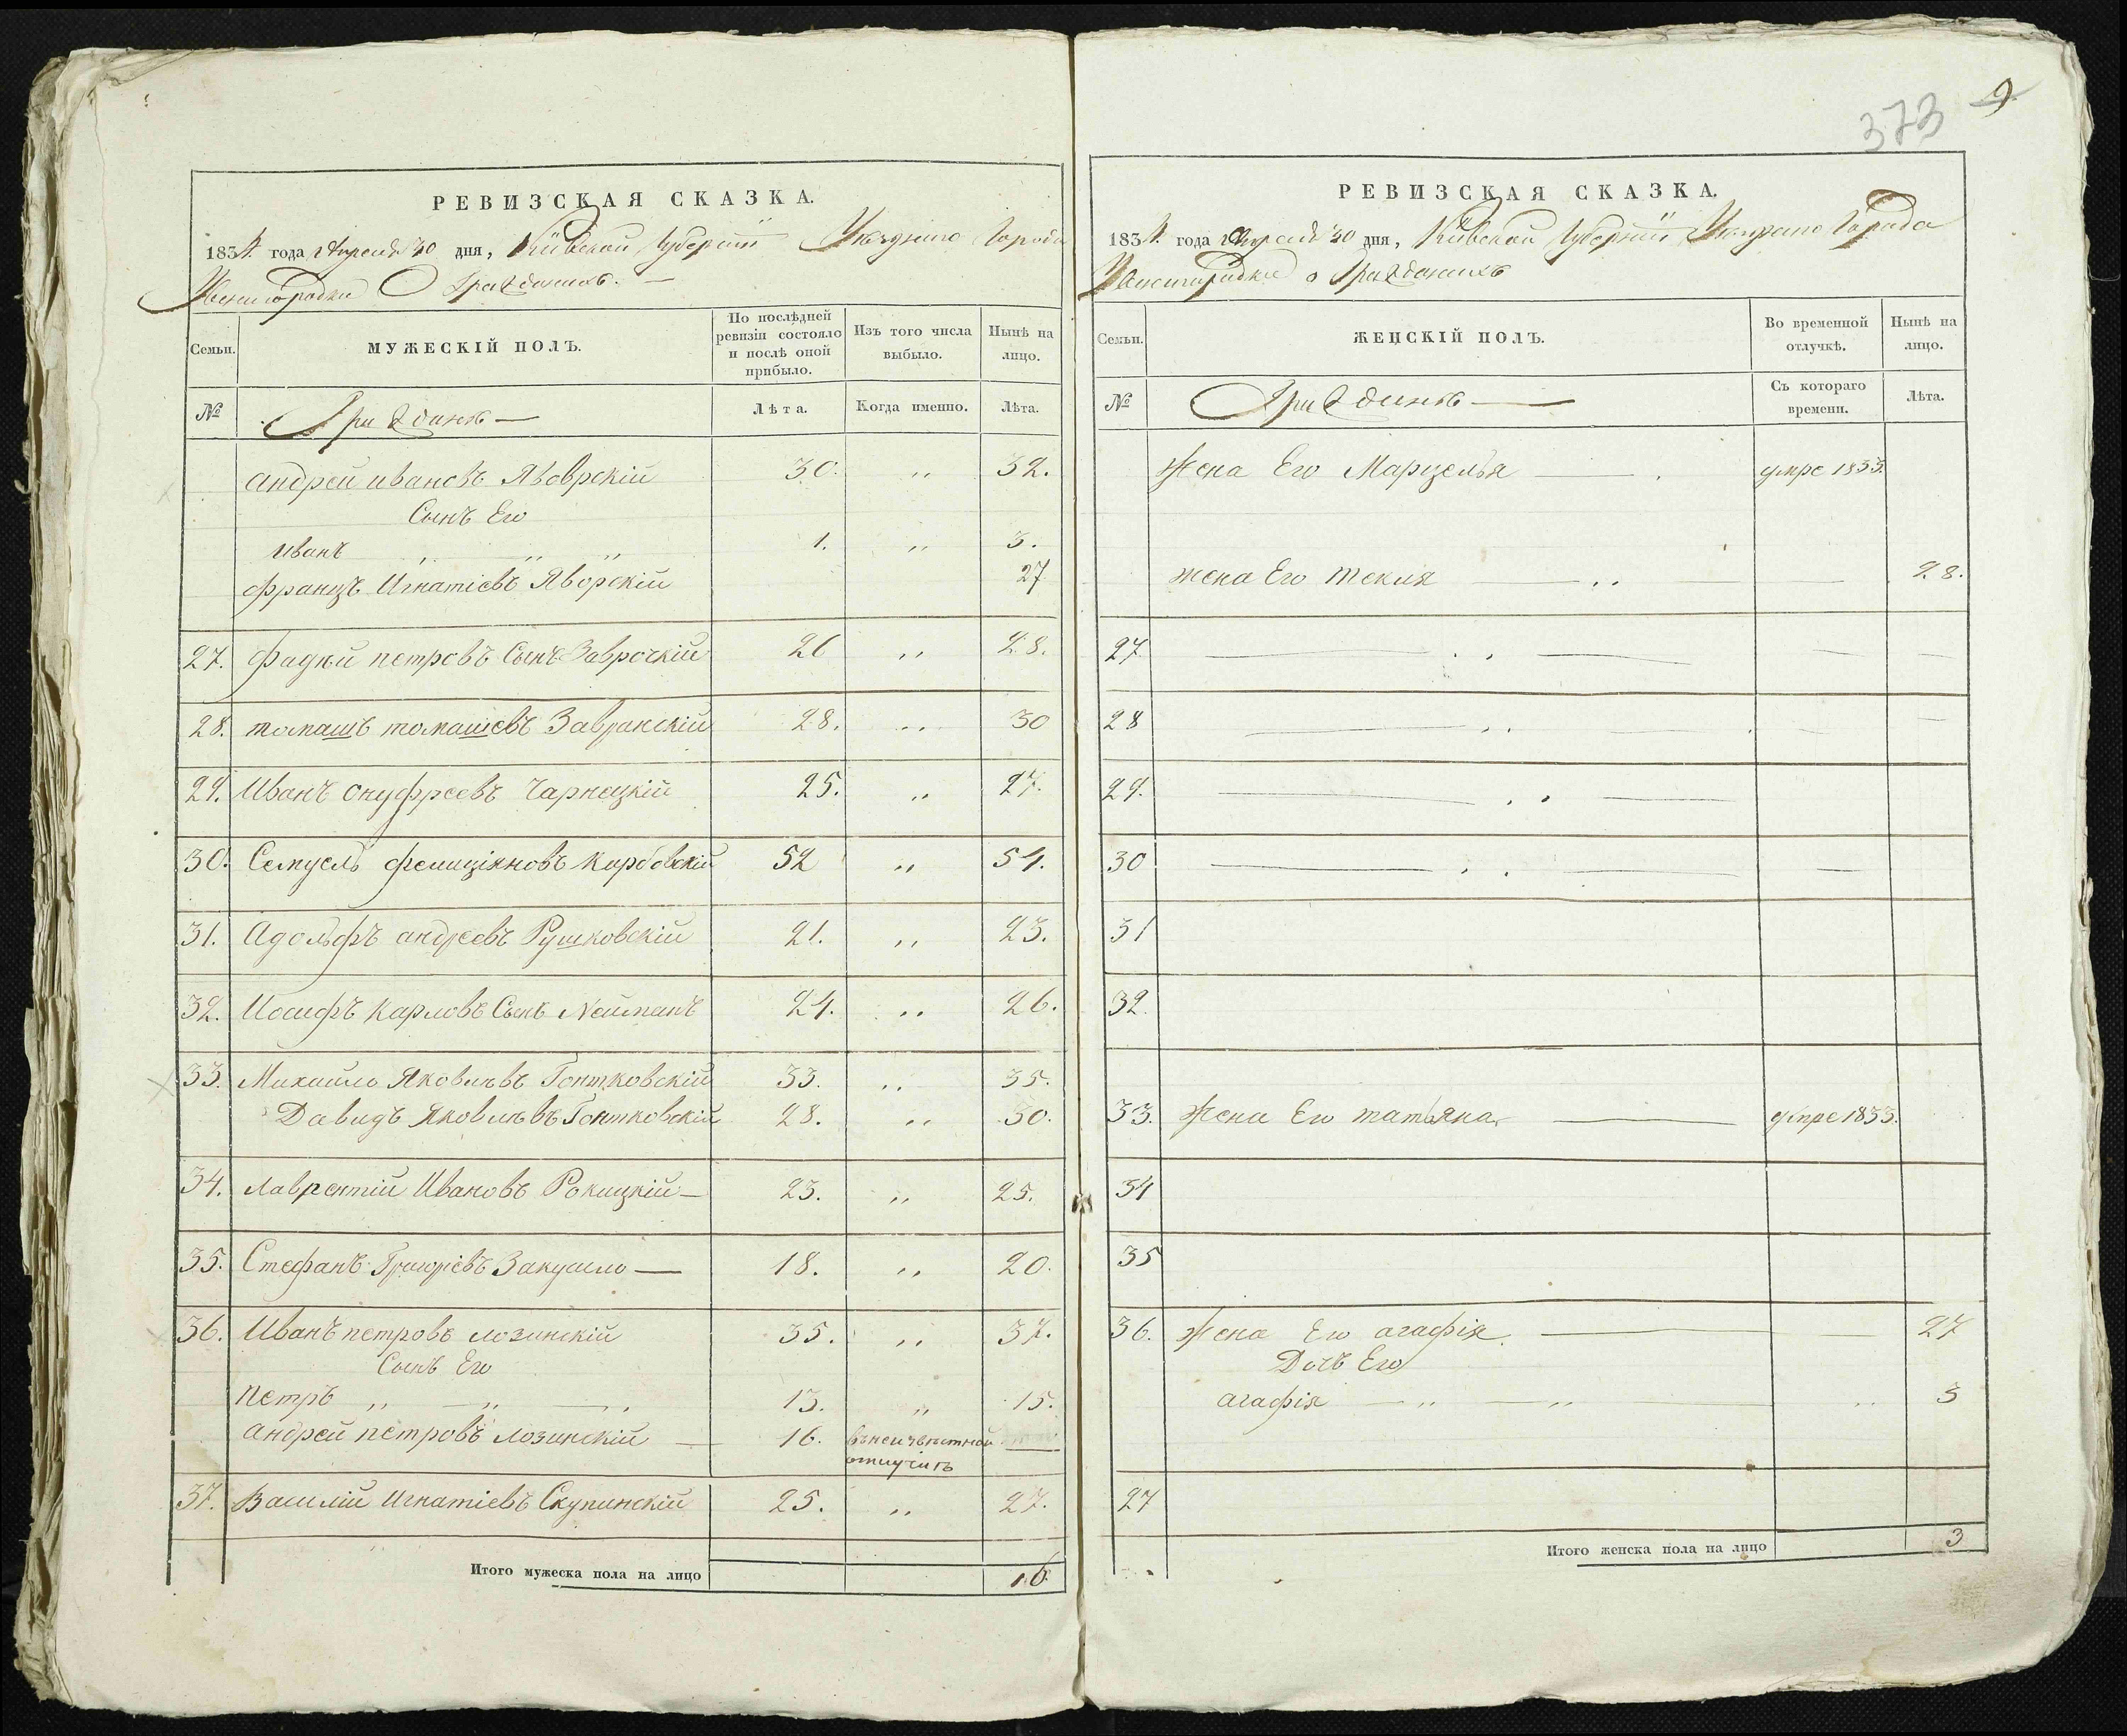 РЕВИЗСКАЯ СКАЗКА.
1834 года Апреля 30 дня, Кіевской Губерніи Уѣзднаго Города
Звенигородки О Гражданахъ.
Семьи.
МУЖЕСКІЙ ПОЛЪ.
По послѣдней ревизіи состояло и послѣ оной прибыло.
Изъ того числа выбыло.
Нынѣ на лицо.
№
Гражданъ
Лѣта.
Когда именно.
Лѣта.
андрей ивановъ Яворскій 30. „ 32.
Сынъ Его
иванъ „ „ „ 1. „ 3.
францъ Игнатіевъ Яворскій 27
27. Фадѣй петровъ Сынъ 26 „ 28.
28. томашъ томашевъ Завранскій 28. „ 30
29. Иванъ Онуфреевъ Чарнецкій 25. „ 27.
30. Семуель фелиціяновъ Карбовскій 52 „ 54.
31. Адольфъ андреевъ Рушковскій 21. „ 23.
32. Иосифъ Карловъ Сынъ Nейманъ 24. „ 26.
33. Михайло Яковлевъ Гонтковскій 33. „ 35.
Давидъ Яковлевъ Гонтковскій 28. „ 30.
34. Лаврентій Ивановъ Рокицкій 23. „ 25.
35. Стефанъ Григоріевъ 18. „ 20.
36. Иванъ петровъ лозинскій 35. „ 37.
Сынъ Его
петръ „ „ 13. „ 15.
андрей петровъ лозинскій 16. въ неизвѣстной
отлучкѣ
37. Василій Игнатіевъ Скупинскій 25. „ 27.
Итого мужеска пола на лицо 16.
373 9
РЕВИЗСКАЯ СКАЗКА.
1834 года Апреля 30 дня, Кіевской Губерніи Уѣзднаго Города
Звенигородки о Гражданахъ
Семьи.
ЖЕНСКІЙ ПОЛЪ.
Во временной отлучкѣ.
Нынѣ на лицо.
№
Гражданъ
Съ котораго времени.
Лѣта.
Жена Его Марцелья умре 1833.
жена Его текля 28.
27
28
29.
30
31
32.
33. Жена Его татьяна умре 1833.
34
35
36. Жена Его агафія 27
Дочь Его
агафія „ „ 3
27
Итого женска пола на лицо 3